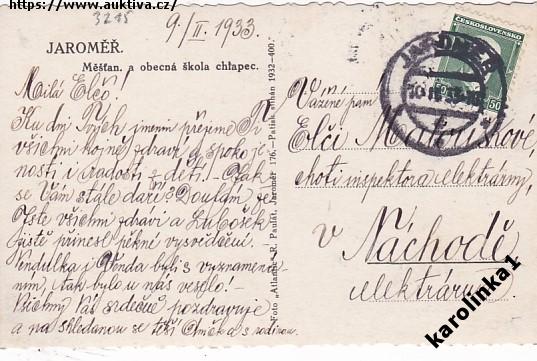 https://www.auktiva.cz/
3215
9./II. 1933.
JAROMĚŘ.
Měšťan. a obecná škola chlapec.
Milá Elčo!
Ku dni Tvých jmenin přejeme Ti
všichni hojně zdraví a spokoje
nosti i radosti z dětí. – Jak
se Vám stále daří? Doufám že
jste všichni zdrávi a Lubošek
jistě přinesl pěkné vysvědčení. –
Vendulka i Venda byli s vyznamená
ním, i tak bylo u nás veselo! –
Všichni Vás srdečně pozdravuje
a na shledanou se těší s rodinou.
Foto „Atlantic" R. Paulát, Jaroměř 176. - Padělek stíhán 1932-400.
ČESKOSLOVENSKO
50
Vážené paní
Elči
choti inspektora elektrárny,
v Náchodě
elektrárna.
karolinka1